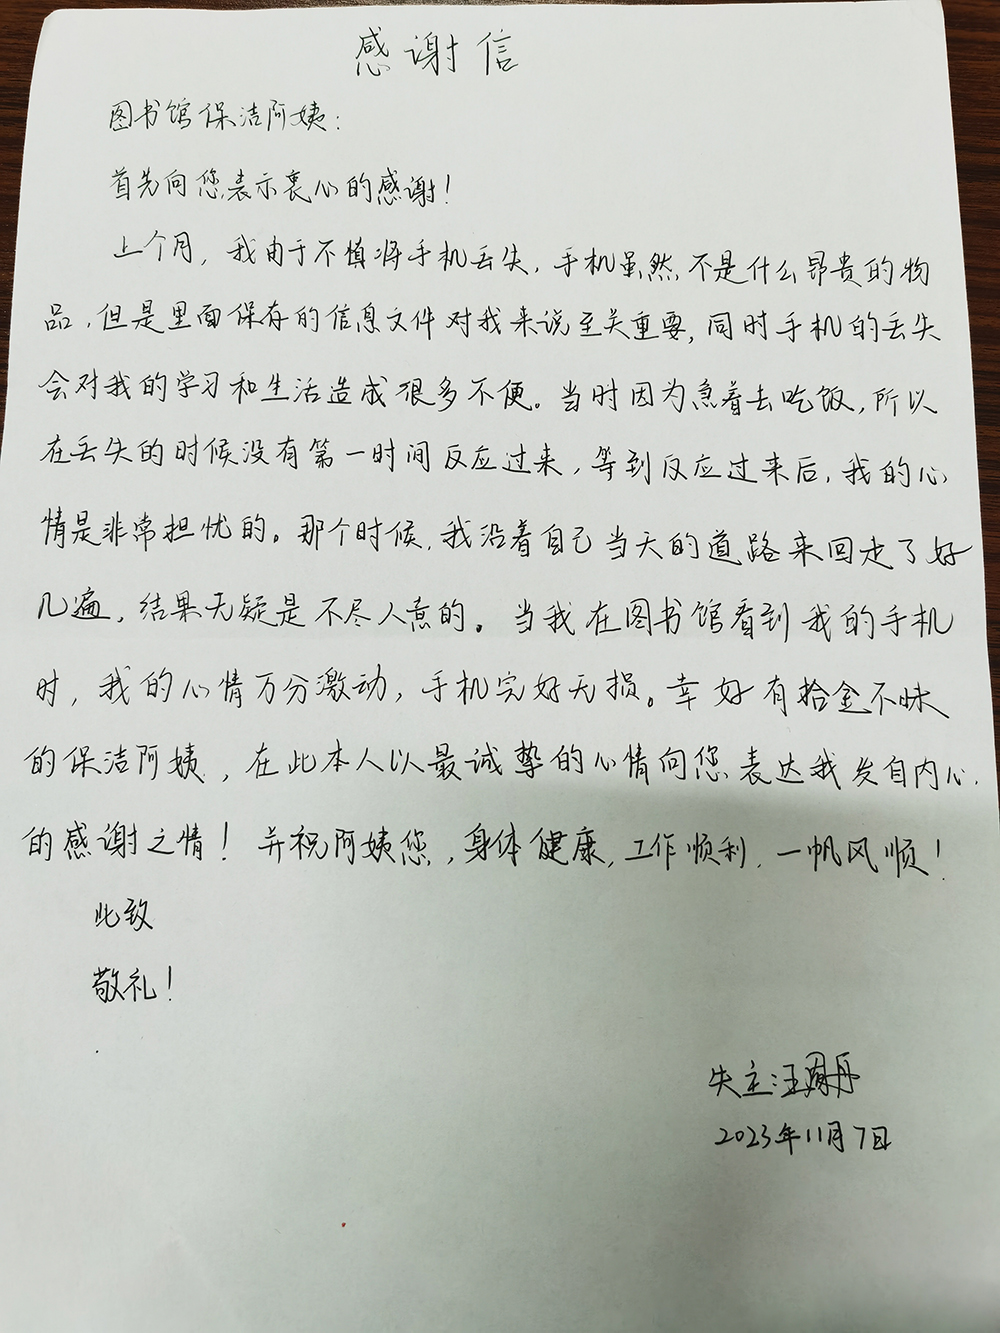 感谢信
图书馆保洁阿姨:
首先向您表示衷心的感谢!
上个月,我由于不慎将手机丢失,手机虽然不是什么昂贵的物
品,但是里面保存的信息文件对我来说至关重要,同时手机的丢失
会对我的学习和生活造成很多不便。当时因为急着去吃饭,所以
在丢失的时候没有第一时间反应过来,等到反应过来后,我的心
情是非常担忧的。那个时候,我沿着自己当天的道路来回走了好
几遍,结果无疑是不尽人意的。当我在图书馆看到我的手机
时,我的心情万分激动,手机完好无损。幸好有拾金不昧
的保洁阿姨,在此本人以最诚挚的心情向您表达我发自内心
的感谢之情!并祝阿姨您,身体健康,工作顺利,一帆风顺!
此致
敬礼!
失主:汪周丹
2023年11月7日